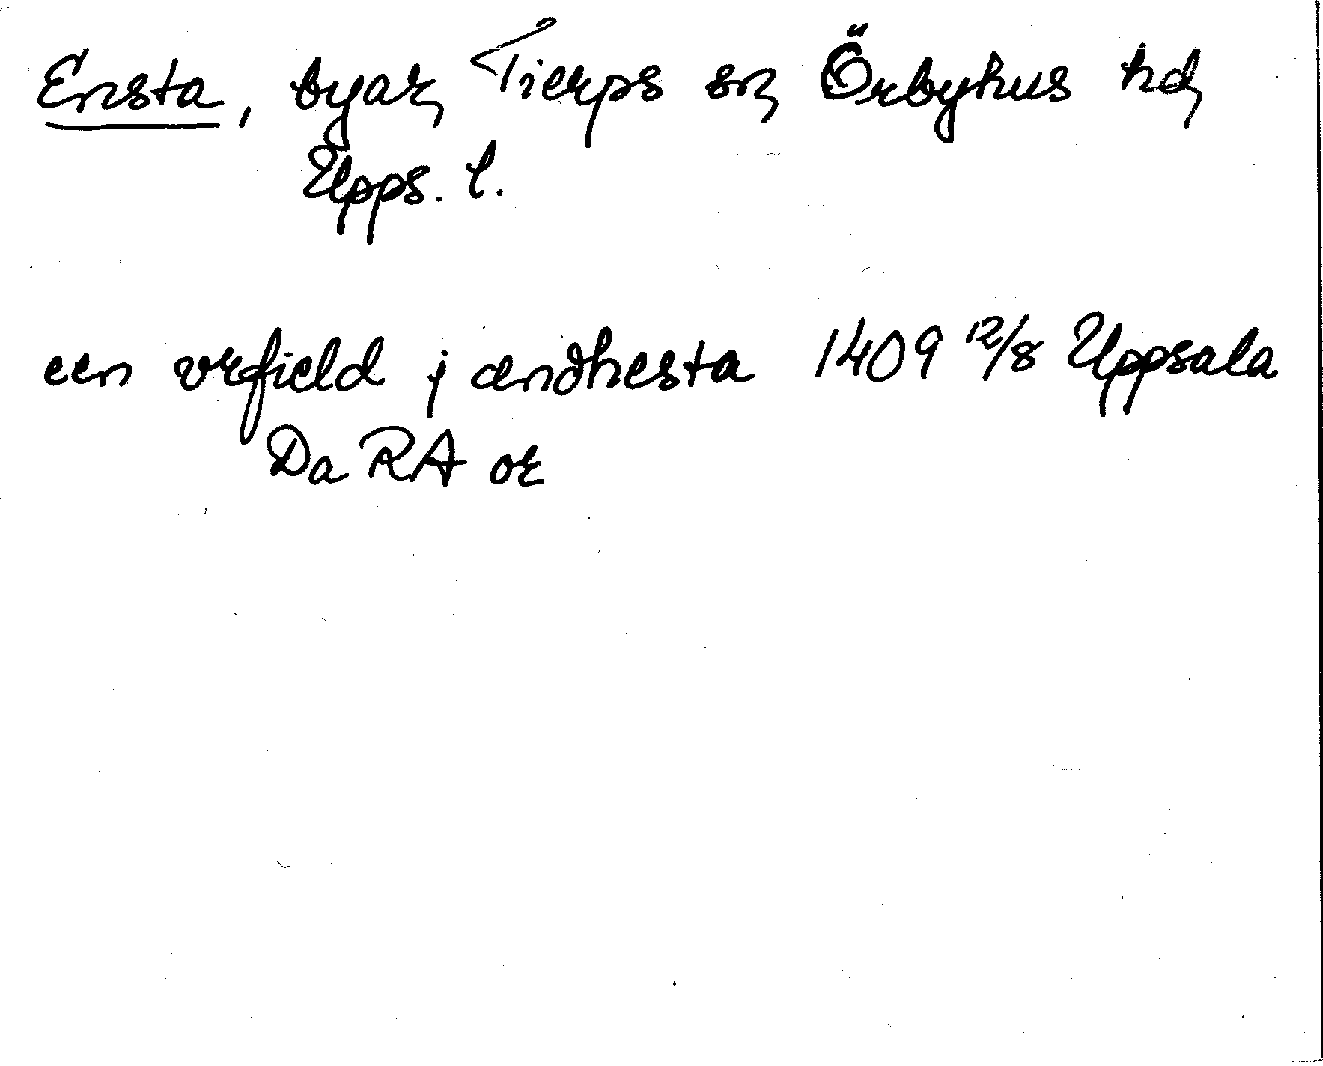 Ensta, byar, Tierps sn, Örbyhus hd,
Upps. l.
een vrfield j ændhesta 1409 12/8 Uppsala
Da RA or